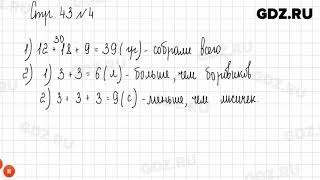 GDZ.RU
Стр. 43 № 4
30
1) 12 + 18 + 9 = 39 (гр) - собрали всего
2) 1) 3 + 3 = 6 (л) - больше, чем боровиков
2) 3 + 3 + 3 = 9 (с) - меньше, чем лисичек.